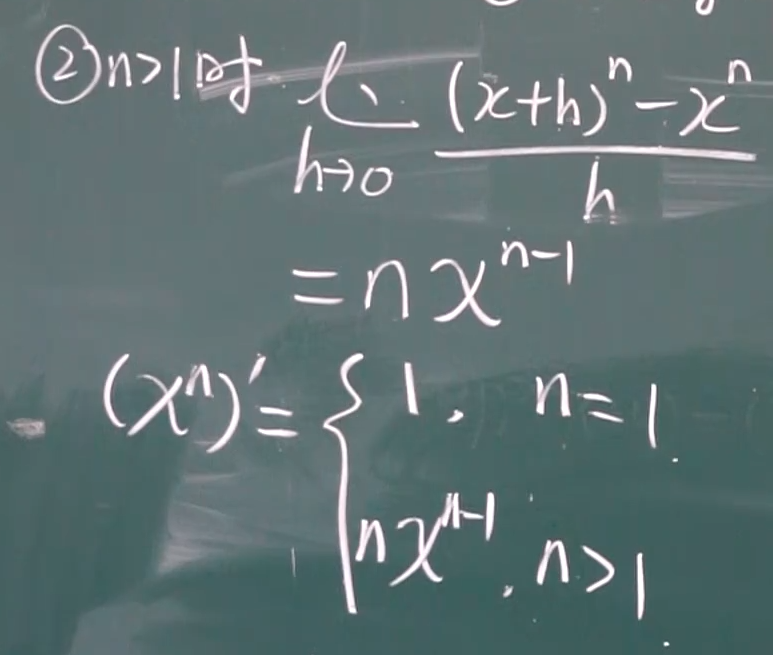 ②n>1时 lim h→0 ((x+h)^n-x^n)/h
=nx^{n-1}
(x^n)'={1, n=1.
nx^{n-1}, n>1.